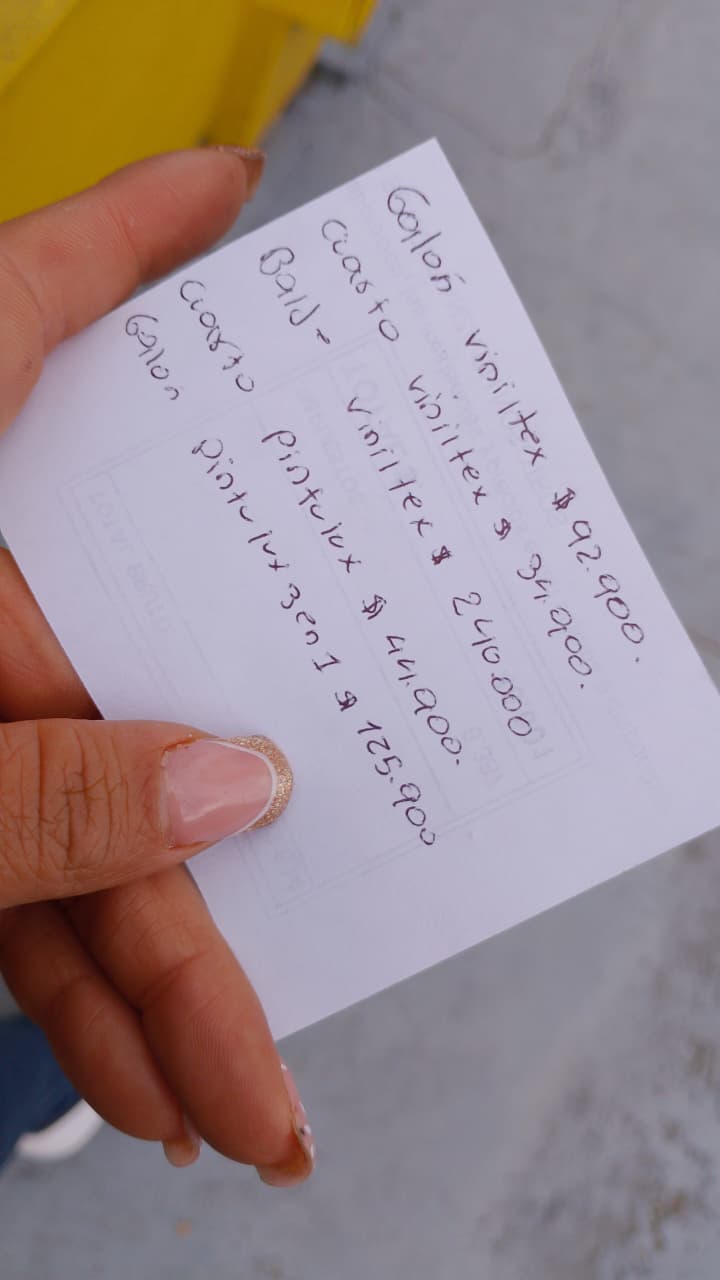 Galon viniltex $ 92.900.
cuarto viniltex $ 34.900.
Balde viniltex $ 240.000
cuarto pintulux $ 44.900.
Galon pintulux 3en1 $ 125.900